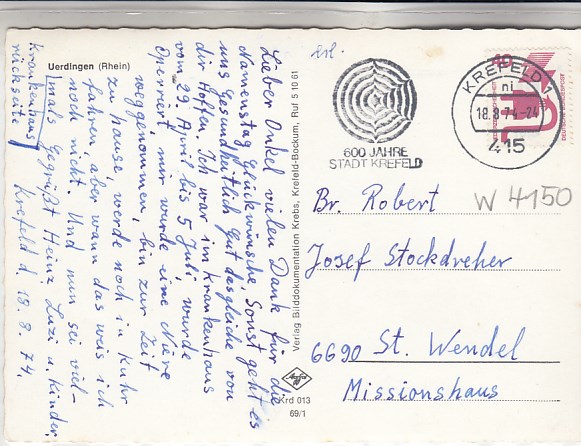 Uerdingen (Rhein)
Krankenhaus
rückseite
Lieber Onkel vielen Dank für die
Namenstag Glückwünsche. Sonst geht es
uns Gesundheitlich gut dasgleiche von
dir Hoffen. Ich war im Krankenhaus
vom 29. April bis 5 Juli, wurde
Operriert mir wurde eine Niere
weggenommen, bin zur Zeit
zu hause, werde noch in Kuhr
fahren, aber wann das weis ich
noch nicht. Und nun sei viel-
mals gegrüßt Heinz Luzi u. Kinder.
Krefeld d 18. 8. 74.
Verlag Bilddokumentation Krebs, Krefeld-Bockum, Ruf 5 10 61
Krd 013
69/1
600 JAHRE
STADT KREFELD
KREFELD 1
ni
18.8.74-24
415
W 4150
Br. Robert
Josef Stockdreher
6690 St. Wendel
Missionshaus